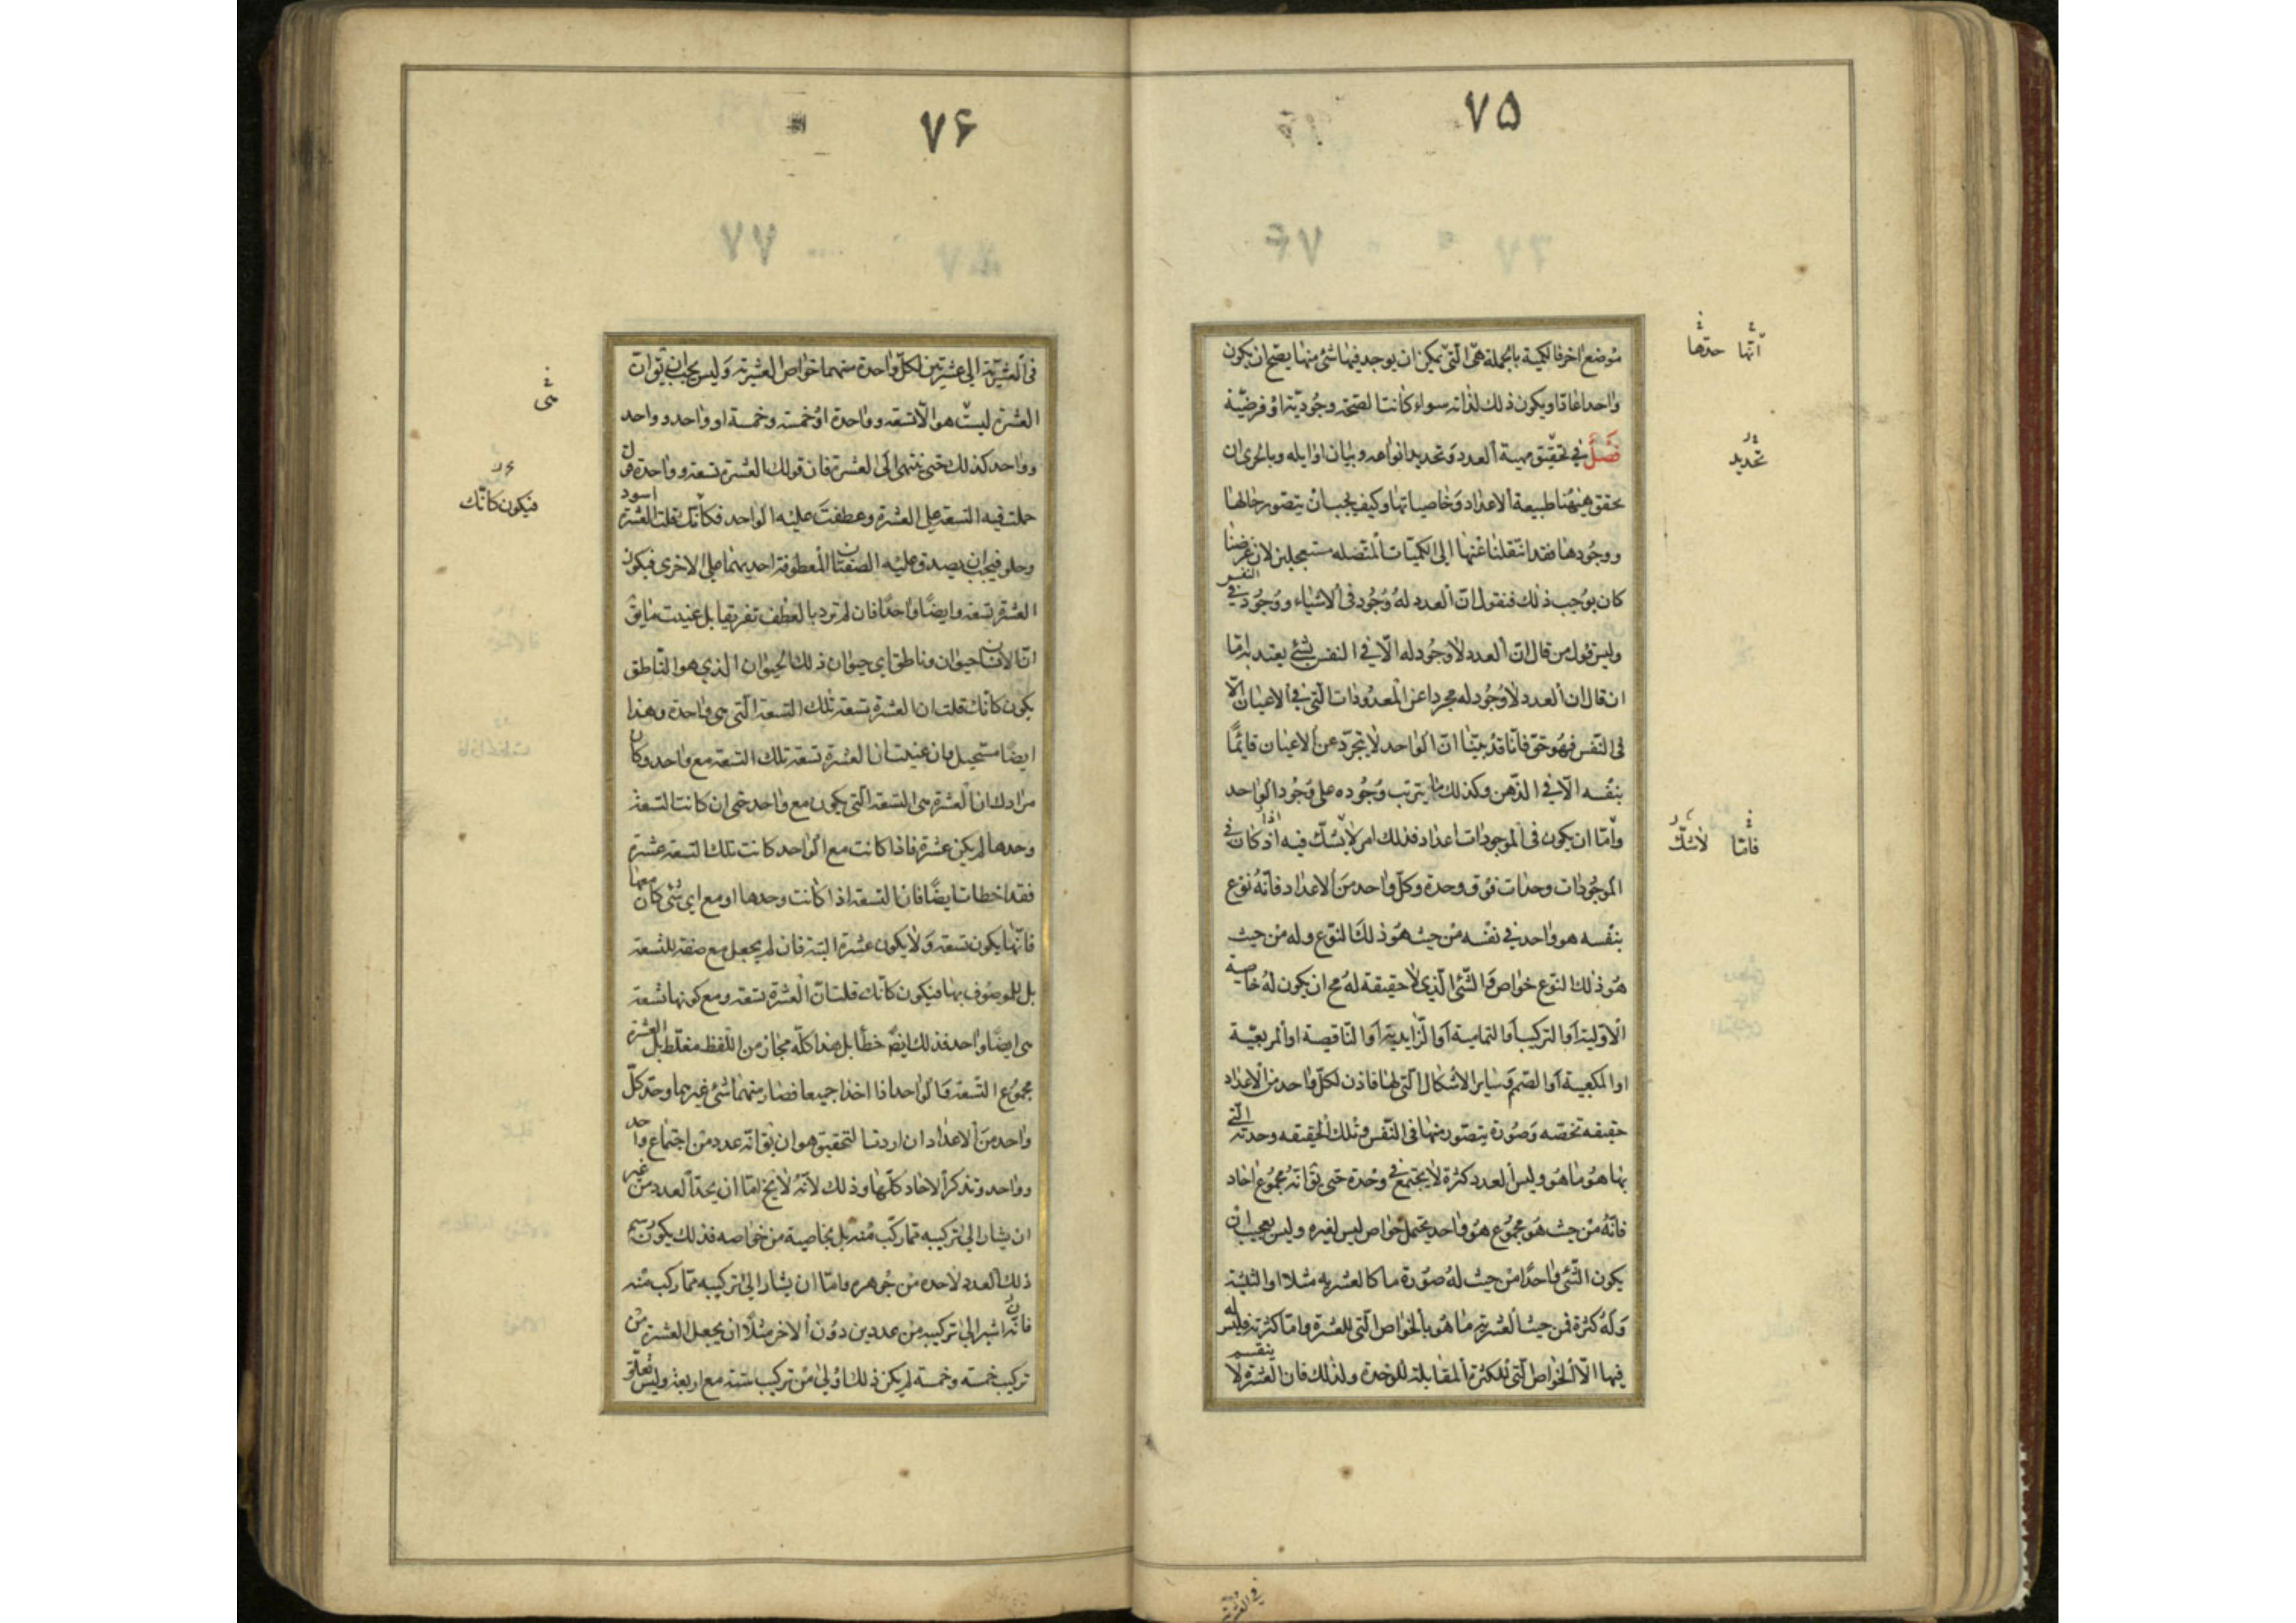 ٧۵
موضع اخر فالكمية بالجملة هى التى يمكن ان يوجد فيها شئ منها يصح ان يكون
واحدا عادا ويكون ذلك لذاته سواء كانت الصحة وجودية او فرضية
فصل في تحقيق مهية العدد وتحديد انواعه وبيان اوايله وبالحرى ان
نحقق هيهنا طبيعة الاعداد وخاصياتها وكيف يجب ان يتصور حالها
ووجودها فقد انتقلنا عنها الى الكميات المتصله مستعجلين لان غرضنا
كان يوجب ذلك فنقول ان العدد له وجود فى الاشياء ووجود في النفس
وليس قول من قال ان العدد لا وجود له الا في النفس بشئ يعتد به اما
ان قال ان العدد لا وجود له مجردا عن المعدودات التى في الاعيان الا
فى النفس فهو حق فانا قد بينا ان الواحد لا يتجرد عن الاعيان قائما
بنفسه الا في الذهن وكذلك ما يترتب وجوده على وجود الواحد
واما ان يكون فى الموجودات اعداد فذلك امر لا يشك فيه اذ كان في
الموجودات وحدات فوق وحدة وكل واحد من الاعداد فانه نوع
بنفسه هو واحد في نفسه من حيث هو ذلك النوع وله من حيث
هو ذلك النوع خواص والشئ الذى لا حقيقة له مح ان يكون له خاصية
الاولية او التركيب او التمامية او الزايدية او الناقصية او المربعية
او المكعبية او الصم وساير الاشكال التى لها فاذن لكل واحد من الاعداد
حقيقه تخصه وصورة يتصور منها فى النفس وتلك الحقيقه وحدته التي
بها هو ما هو وليس العدد كثرة لا يجتمع في وحدة حتى يقا انه مجموع احاد
فانه من حيث هو مجموع هو واحد يحتمل خواص ليس لغيره وليس بعجيب ان
يكون الشئ واحدا من حيث له صورة ما كالعشريه مثلا او الثلثية
وله كثرة فمن حيث العشرية ما هو بالخواص التى للعشرة واما كثرته فليس له
فيها الا الخواص التى للكثرة المقابلة للوحدة ولذلك فان العشرة لا ينقسم
انها حدها
تحديد
فاما لا شك
٧۶
فى العشرية الى عشرتين لكل واحدة منهما خواص العشرية وليس يجب ان يق ان
العشرة ليست هو الا تسعه وواحدة او خمسة وخمسة او واحد وواحد
وواحد كذلك حتى ينتهى الى العشرة فان قولك العشرة تسعه وواحدة قول
حملت فيه التسعة على العشرة وعطفت عليه الواحد فكانك قلت العشرة اسود
وحلو فيجب ان يصدق عليه الصفتان المعطوفة احديهما على الاخرى فيكون
العشرة تسعه وايضا واحدا فان لم ترد بالعطف تعريفا بل عنيت ما يق
ان الانسان حيوان وناطق اى حيوان ذلك الحيوان الذي هو الناطق
يكون كانك قلت ان العشرة تسعة تلك التسعة التى هى واحدة وهذا
ايضا مستحيل وان عنيت ان العشرة تسعة تلك التسعة مع واحد وكان
مرادك ان العشرة هى التسعة التى يكون مع واحد حتى ان كانت التسعة
وحدها لم يكن عشرة فاذا كانت مع الواحد كانت تلك التسعة عشرة
فقد اخطات ايضا فان التسعة اذا كانت وحدها او مع اى شئ كان معها
فانها يكون تسعة ولا يكون عشرة البتة فان لم يجعل مع صفة للتسعة
بل للموصوف بها فيكون كانك قلت ان العشرة تسعة ومع كونها تسعة
هى ايضا واحد فذلك ايضا خطأ بل هذا كله مجاز من اللفظ مغلط بل العشرة
مجموع التسعة والواحد اذا اخذا جميعا فصار منهما شئ غيرهما وحد كل
واحد من الاعداد ان اردت التحقيق هو ان يقا انه عدد من اجتماع واحد
وواحد وتذكر الاحاد كلها وذلك لانه لا يخ اما ان يحد العدد من غير
ان يشار الى تركيبه مما ركب منه بل بخاصية من خواصه فذلك يكون رسم
ذلك العدد لا حده من جوهره واما ان يشار الى تركيبه مما ركب منه
فان اشير الى تركيبه من عددين دون الاخر مثلا ان يجعل العشرة من
تركيب خمسة وخمسة لم يكن ذلك اولى من تركيب ستة مع اربعة وليس تعلق
هى
فيكون كانك